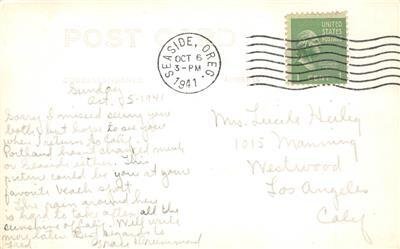 POST CARD
SEASIDE, OREG.
OCT 6
3-PM
1941
UNITED STATES
POSTAGE
1 CENT 1
Sunday
Oct. 5-1941
Sorry I missed seeing you
both but hope to see you
when I return to Calif.
Portland hasn't changed much
records either. This
picture could be you at your
favorite beach spot.
The rain around here
is hard to take after all the
sunshine of Calif. Will write
more later. Best regards to
Fred. Grace
Mrs. Lucile Heilig
1015 Manning
Westwood
Los Angeles
Calif